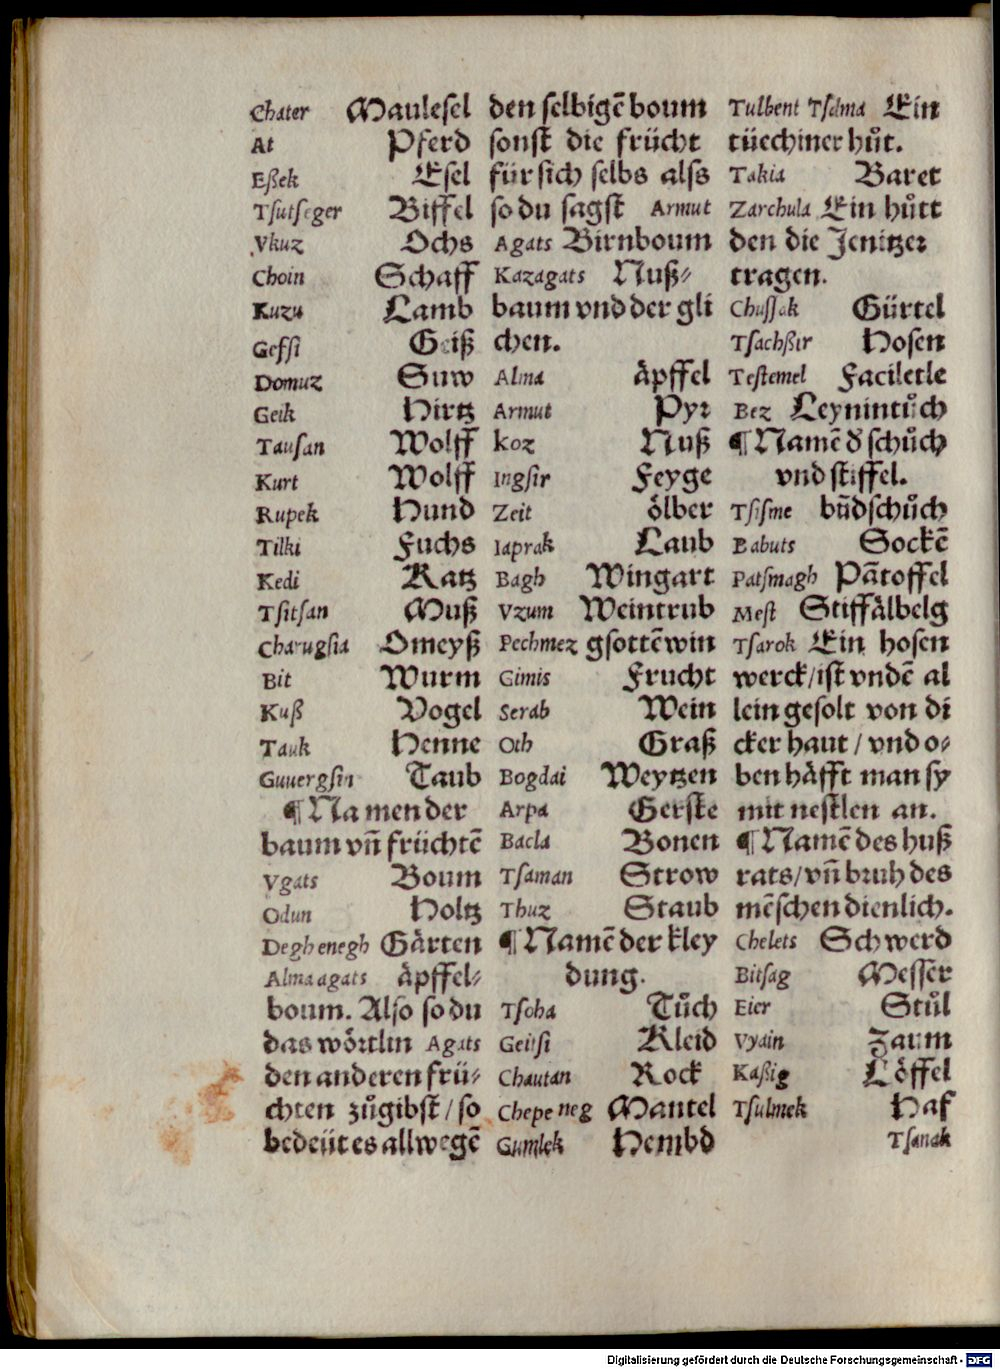 Chater Mauleſel
At Pferd
Eßek Eſel
Tſutſeger Biffel
Vkuz Ochs
Choin Schaff
Kuzu Lamb
Geſſi Geiß
Domuz Suw
Geik Hirtz
Tauſan Wolff
Kurt Wolff
Rupek Hund
Tilki Fuchs
Kedi Katz
Tſitſan Muß
Charugſia Omeyß
Bit Wurm
Kuß Vogel
Tauk Henne
Guuergſin Taub
¶ Namen der
baum vñ früchtē
Vgats Boum
Odun Holtz
Deghenegh Gårten
Alma agats åpffel⸗
boum. Alſo ſo du
das wörtlin Agats
den anderen frü⸗
chten zůgibſt / ſo
bedeüt es allwegē
den ſelbigē boum
ſonſt die frücht
für ſich ſelbs alſs
ſo du ſagſt Armut
Agats Birnboum
Kazagats Nuß⸗
baum vnd der gli
chen.
Alma åpffel
Armut Pyr
koz Nuß
Ingſir Feyge
Zeit ölber
Iaprak Laub
Bagh Wingart
Vzum Weintrub
Pechmez gſottē win
Gimis Frucht
Serab Wein
Oth Graß
Bogdai Weytzen
Arpa Gerſte
Bacla Bonen
Tſaman Strow
Thuz Staub
¶ Namē der kley
dung.
Tſoha Tůch
Geitſi Kleid
Chautan Rock
Chepeneg Mantel
Gumlek Hembd
Tulbent Tſalma Ein
tüechiner hůt.
Takia Baret
Zarchula Ein hůtt
den die Jenitzer
tragen.
Chuſſak Gürtel
Tſachßir Hoſen
Teſtemel Faciletle
Bez Leynintůch
¶ Namē d̕ ſchůch
vnd ſtiffel.
Tſiſme būdſchůch
Babuts Sockē
Patſmagh Pātoffel
Meſt Stiffålbelg
Tſarok Ein hoſen
werck / iſt vndē al
lein geſolt von di
cker haut / vnd o⸗
ben håfft man ſy
mit neſtlen an.
¶ Namē des huß
rats / vñ bruh des
mēſchen dienlich.
Chelets Schwerd
Bitſag Meſſer
Eier Stůl
Vyain Zaum
Kaßig Löffel
Tſulmek Haf
Tſanak
Digitalisierung gefördert durch die Deutsche Forschungsgemeinschaft - DFG